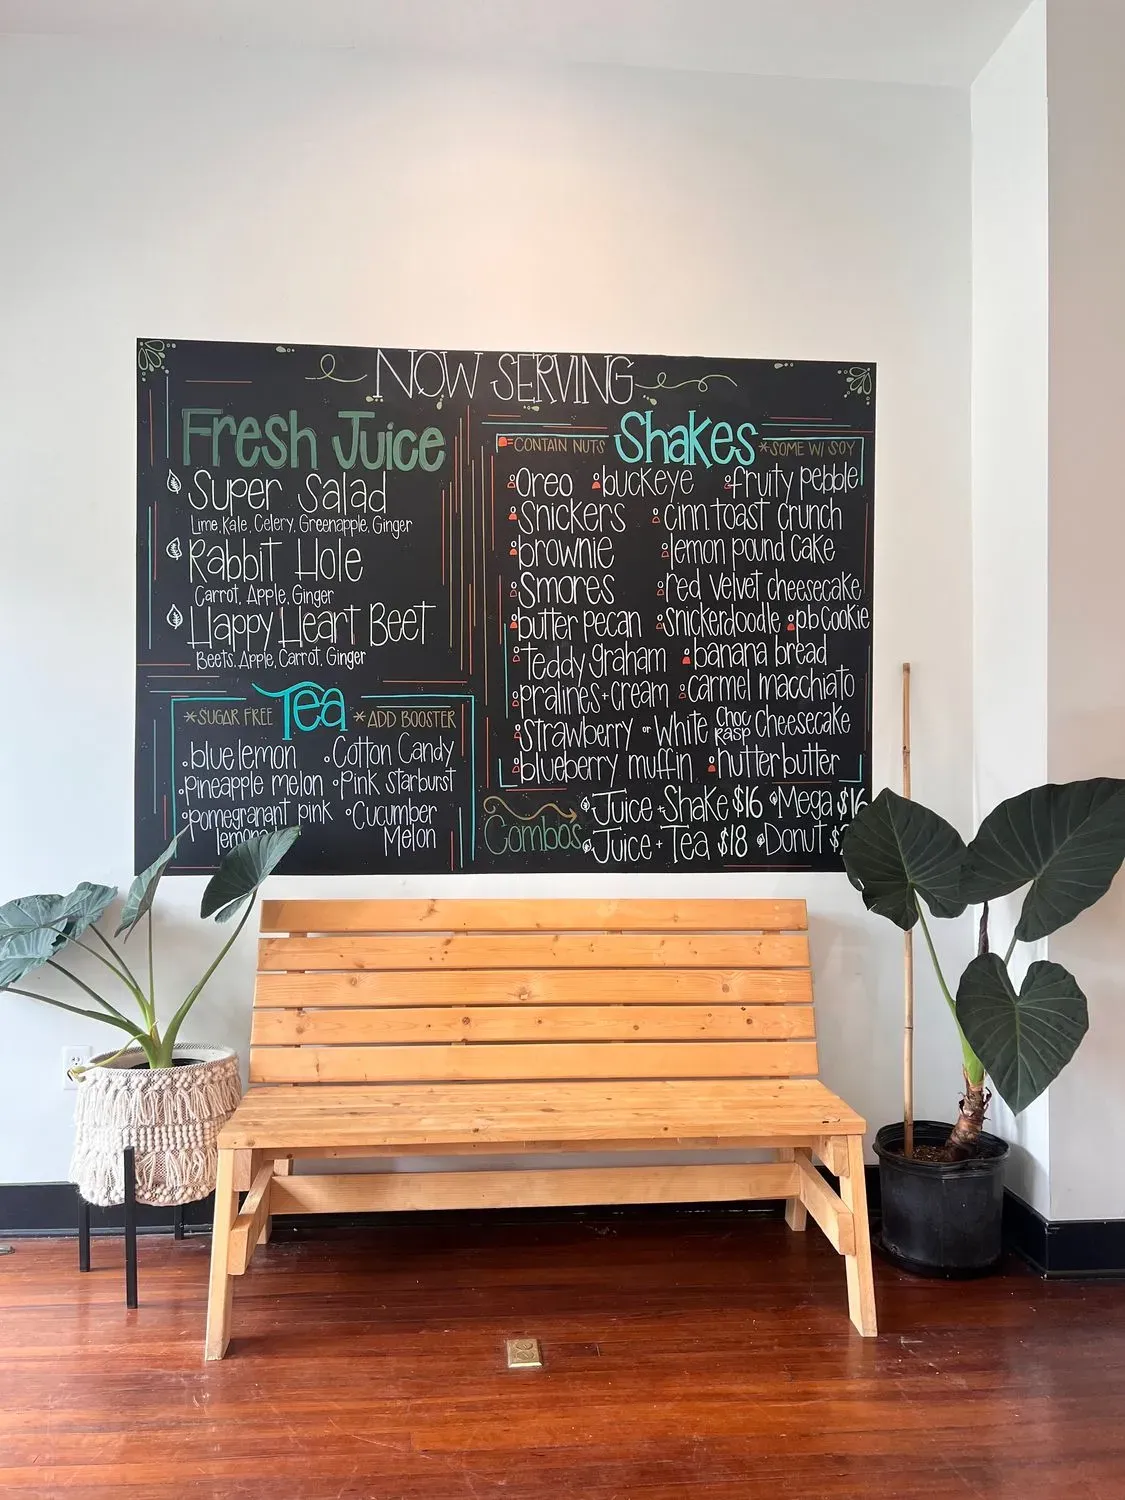 NOW SERVING
Fresh Juice
Super Salad
Lime, Kale, Celery, Greenapple, Ginger
Rabbit Hole
Carrot, Apple, Ginger
Happy Heart Beet
Beets, Apple, Carrot, Ginger
Tea
*SUGAR FREE *ADD BOOSTER
blue lemon Cotton Candy
pineapple melon Pink Starburst
pomegranant pink Cucumber
Melon
Shakes
=CONTAIN NUTS *SOME W/ SOY
Oreo buckeye fruity pebble
Snickers cinn toast crunch
brownie lemon pound cake
Smores red velvet cheesecake
butter pecan Snickerdoodle pb cookie
teddy graham banana bread
pralines + cream carmel macchiato
Strawberry or White Choc Rasp cheesecake
blueberry muffin nutterbutter
Combos
Juice + Shake $16 Mega $16
Juice + Tea $18 Donut